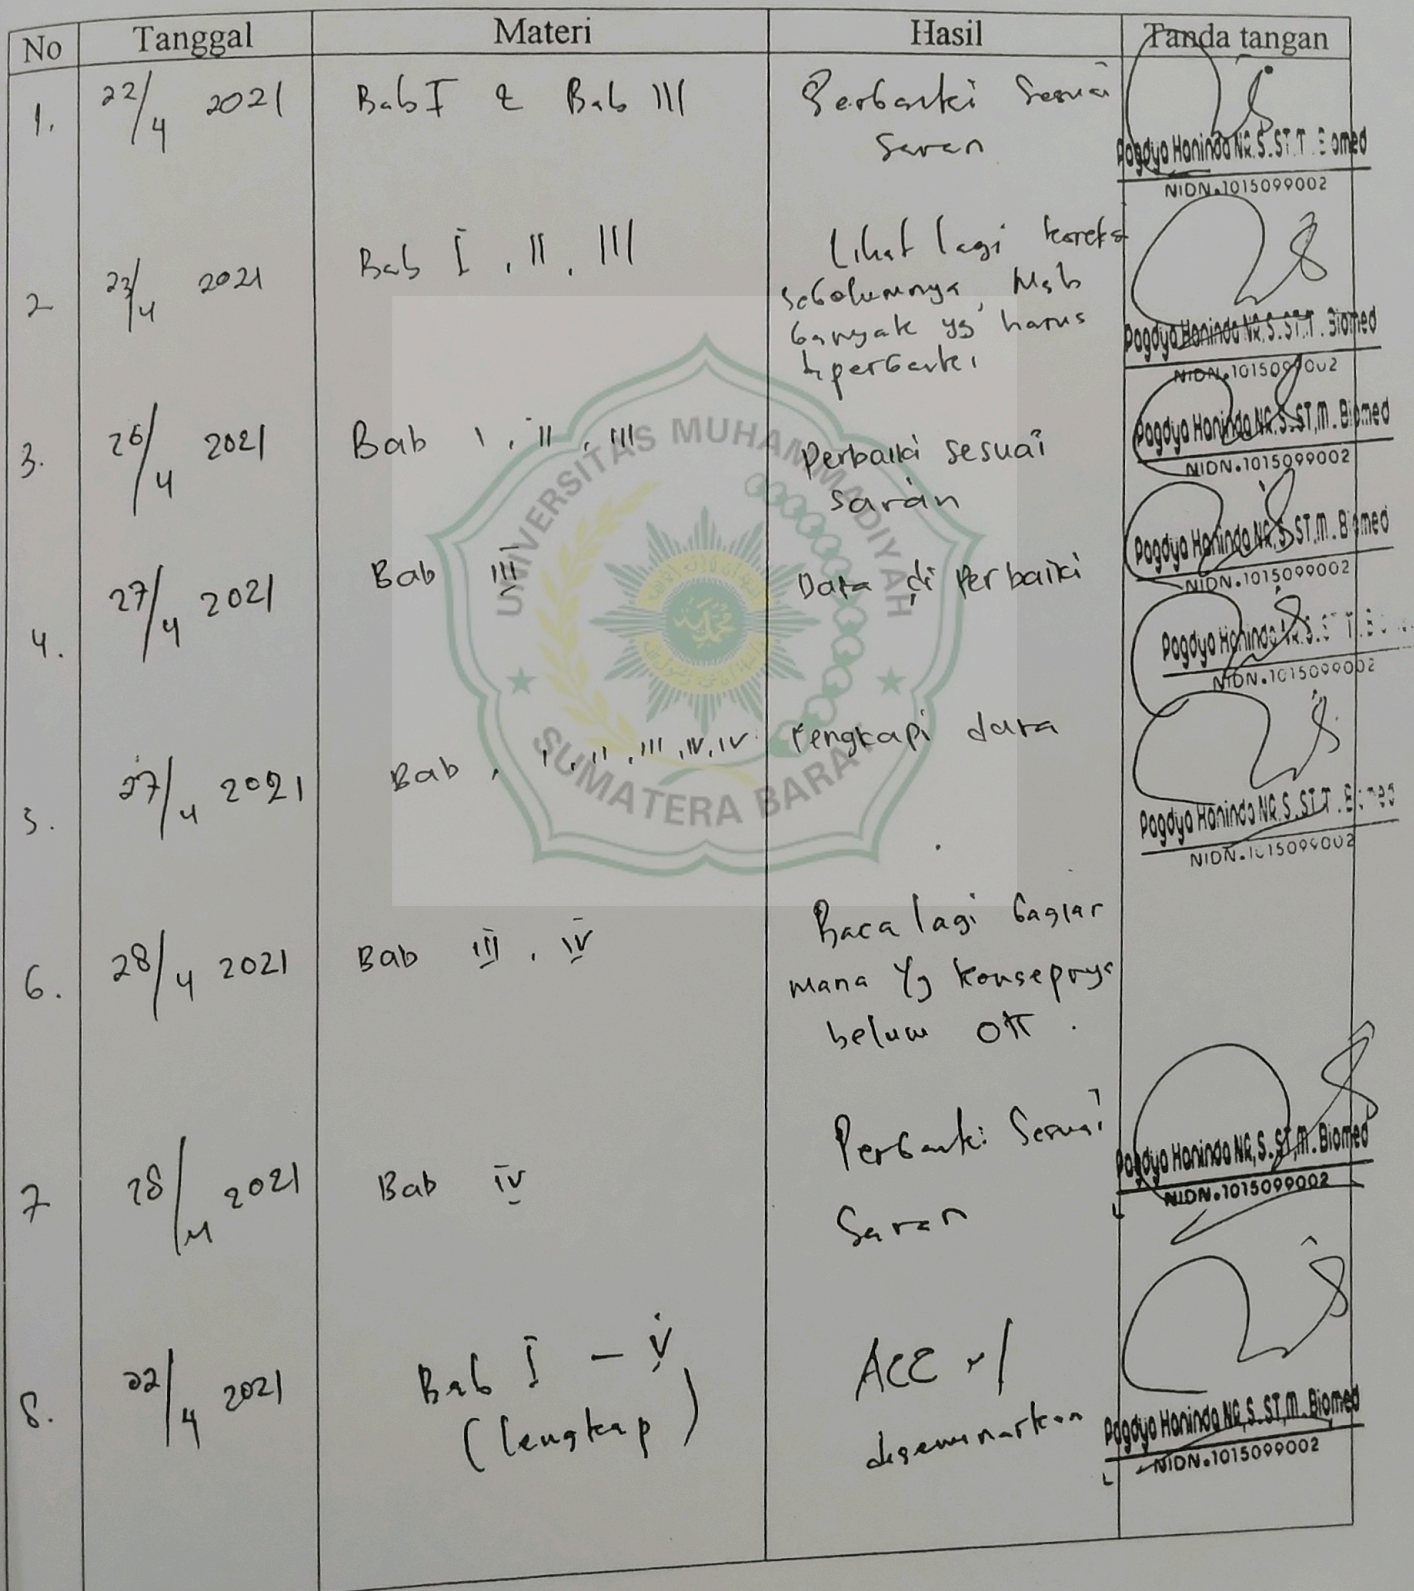 No Tanggal Materi Hasil Tanda tangan
1. 22/4 2021 Bab I & Bab III Perbaiki Sesuai
saran
Pagdya Haninda NR, S.ST, M.Biomed
NIDN.1015099002
2 23/4 2021 Bab I, II, III Lihat lagi koreksi
sebelumnya, Msh
banyak yg harus
diperbaiki
Pagdya Haninda NR, S.ST, M.Biomed
NIDN.1015099002
3. 26/4 2021 Bab I, II, III Perbaiki sesuai
saran
Pagdya Haninda NR, S.ST, M.Biomed
NIDN.1015099002
4. 27/4 2021 Bab III Data di Perbaiki
Pagdya Haninda NR, S.ST, M.Biomed
NIDN.1015099002
Pagdya Haninda NR, S.ST
NIDN.1015099002
5. 27/4 2021 Bab, I, II, III, IV, IV Lengkapi data
Pagdya Haninda NR, S.ST, M.Biomed
NIDN.1015099002
6. 28/4 2021 Bab III, IV Baca lagi bagian
mana yg konsepnya
belum OK.
7 28/4 2021 Bab IV Perbaiki Sesuai
Saran
Pagdya Haninda NR, S.ST, M.Biomed
NIDN.1015099002
8. 22/4 2021 Bab I - V ACC
(lengkap) diseminarkan
Pagdya Haninda NR, S.ST, M.Biomed
NIDN.1015099002
UNIVERSITAS MUHAMMADIYAH
SUMATERA BARAT